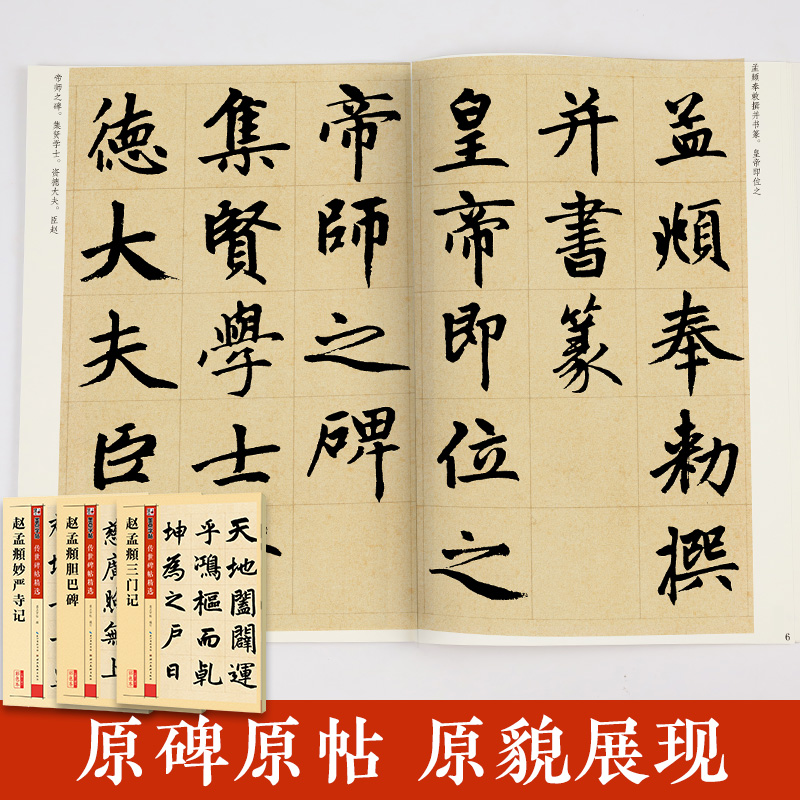 孟頫奉敕撰并书篆。皇帝即位之
孟頫奉勅撰
并書篆
皇帝即位之
6
帝師之碑
集賢學士
德大夫臣
帝师之碑。集贤学士。资德大夫。臣赵
赵孟頫妙严寺记
传世碑帖精选
赵孟頫胆巴碑
传世碑帖精选
慈廣照無上
赵孟頫三门记
传世碑帖精选
天地闔闢運
乎鴻樞而乹
坤為之戸日
原碑原帖 原貌展现